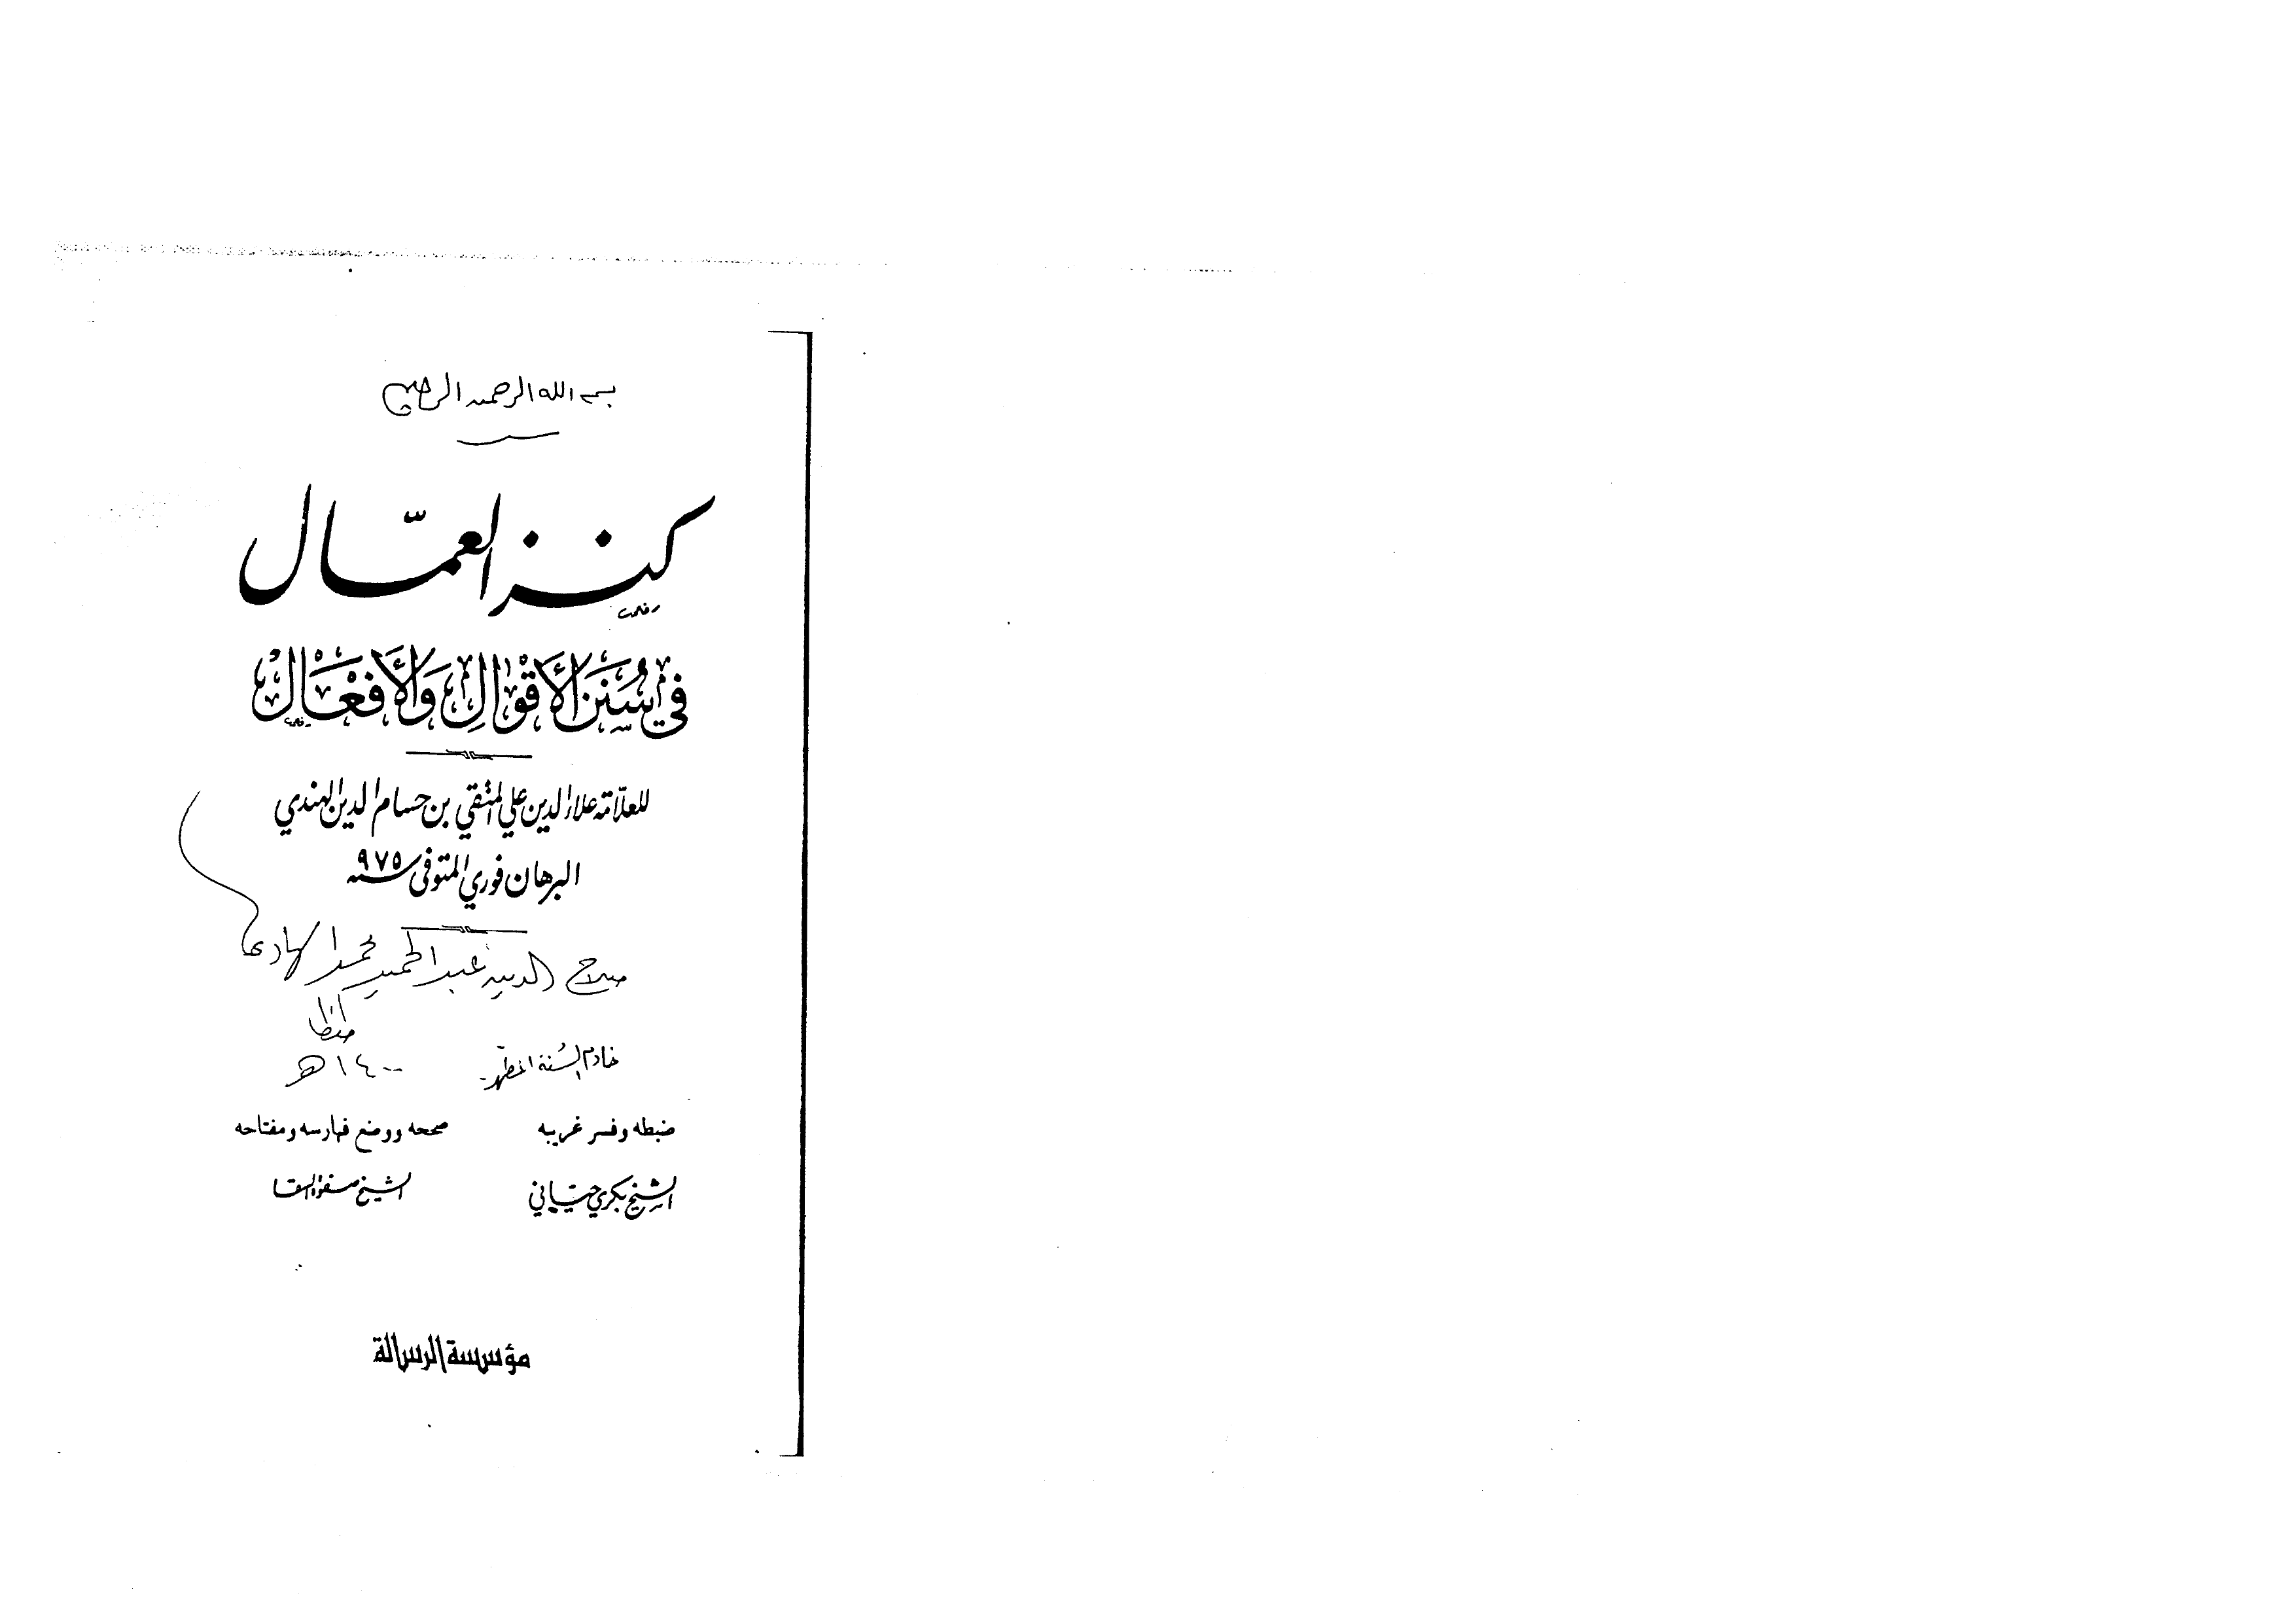 بسم الله الرحمن الرحيم
كنز العمّال
في سُنَنِ الأَقْوَالِ وَالأَفْعَالْ
للعلّامة علاء الدين علي المتقي بن حسام الدين الهندي
البرهان فوري المتوفى سنة ٩٧٥
صلاح الدين عبد الحميد محمد الهادي
خادم السُنة المطهّرة ١٤٠٠هـ
ضبطه وفسر غريبه صححه ووضع فهارسه ومفتاحه
الشيخ بكري حيّاني الشيخ صفوة السقا
مؤسسة الرسالة